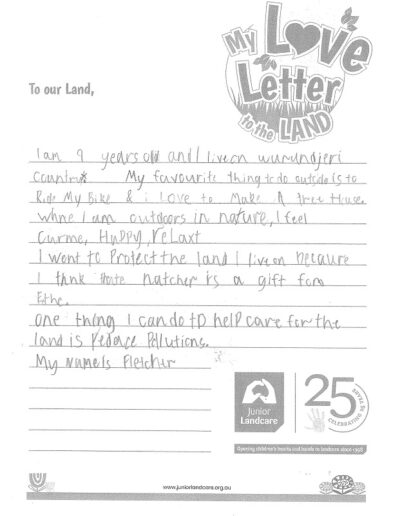 My Love
Letter
to the LAND
To our Land,
I am 9 years old and I live on wurundjeri
Country My favourite thing to do outside is to
Ride My Bike & i Love to Make A tree House.
whne I am outdoors in nature, I feel
Carme, Happy, relaxt
I wont to Protect the land I live on because
I think natcher is a gift
one thing I can do to help care for the
land is Reduce Pollutions.
My Name Is Fletcher
Junior
Landcare
25 YEARS
CELEBRATING
Opening children's hearts and hands to landcare since 1998
www.juniorlandcare.org.au